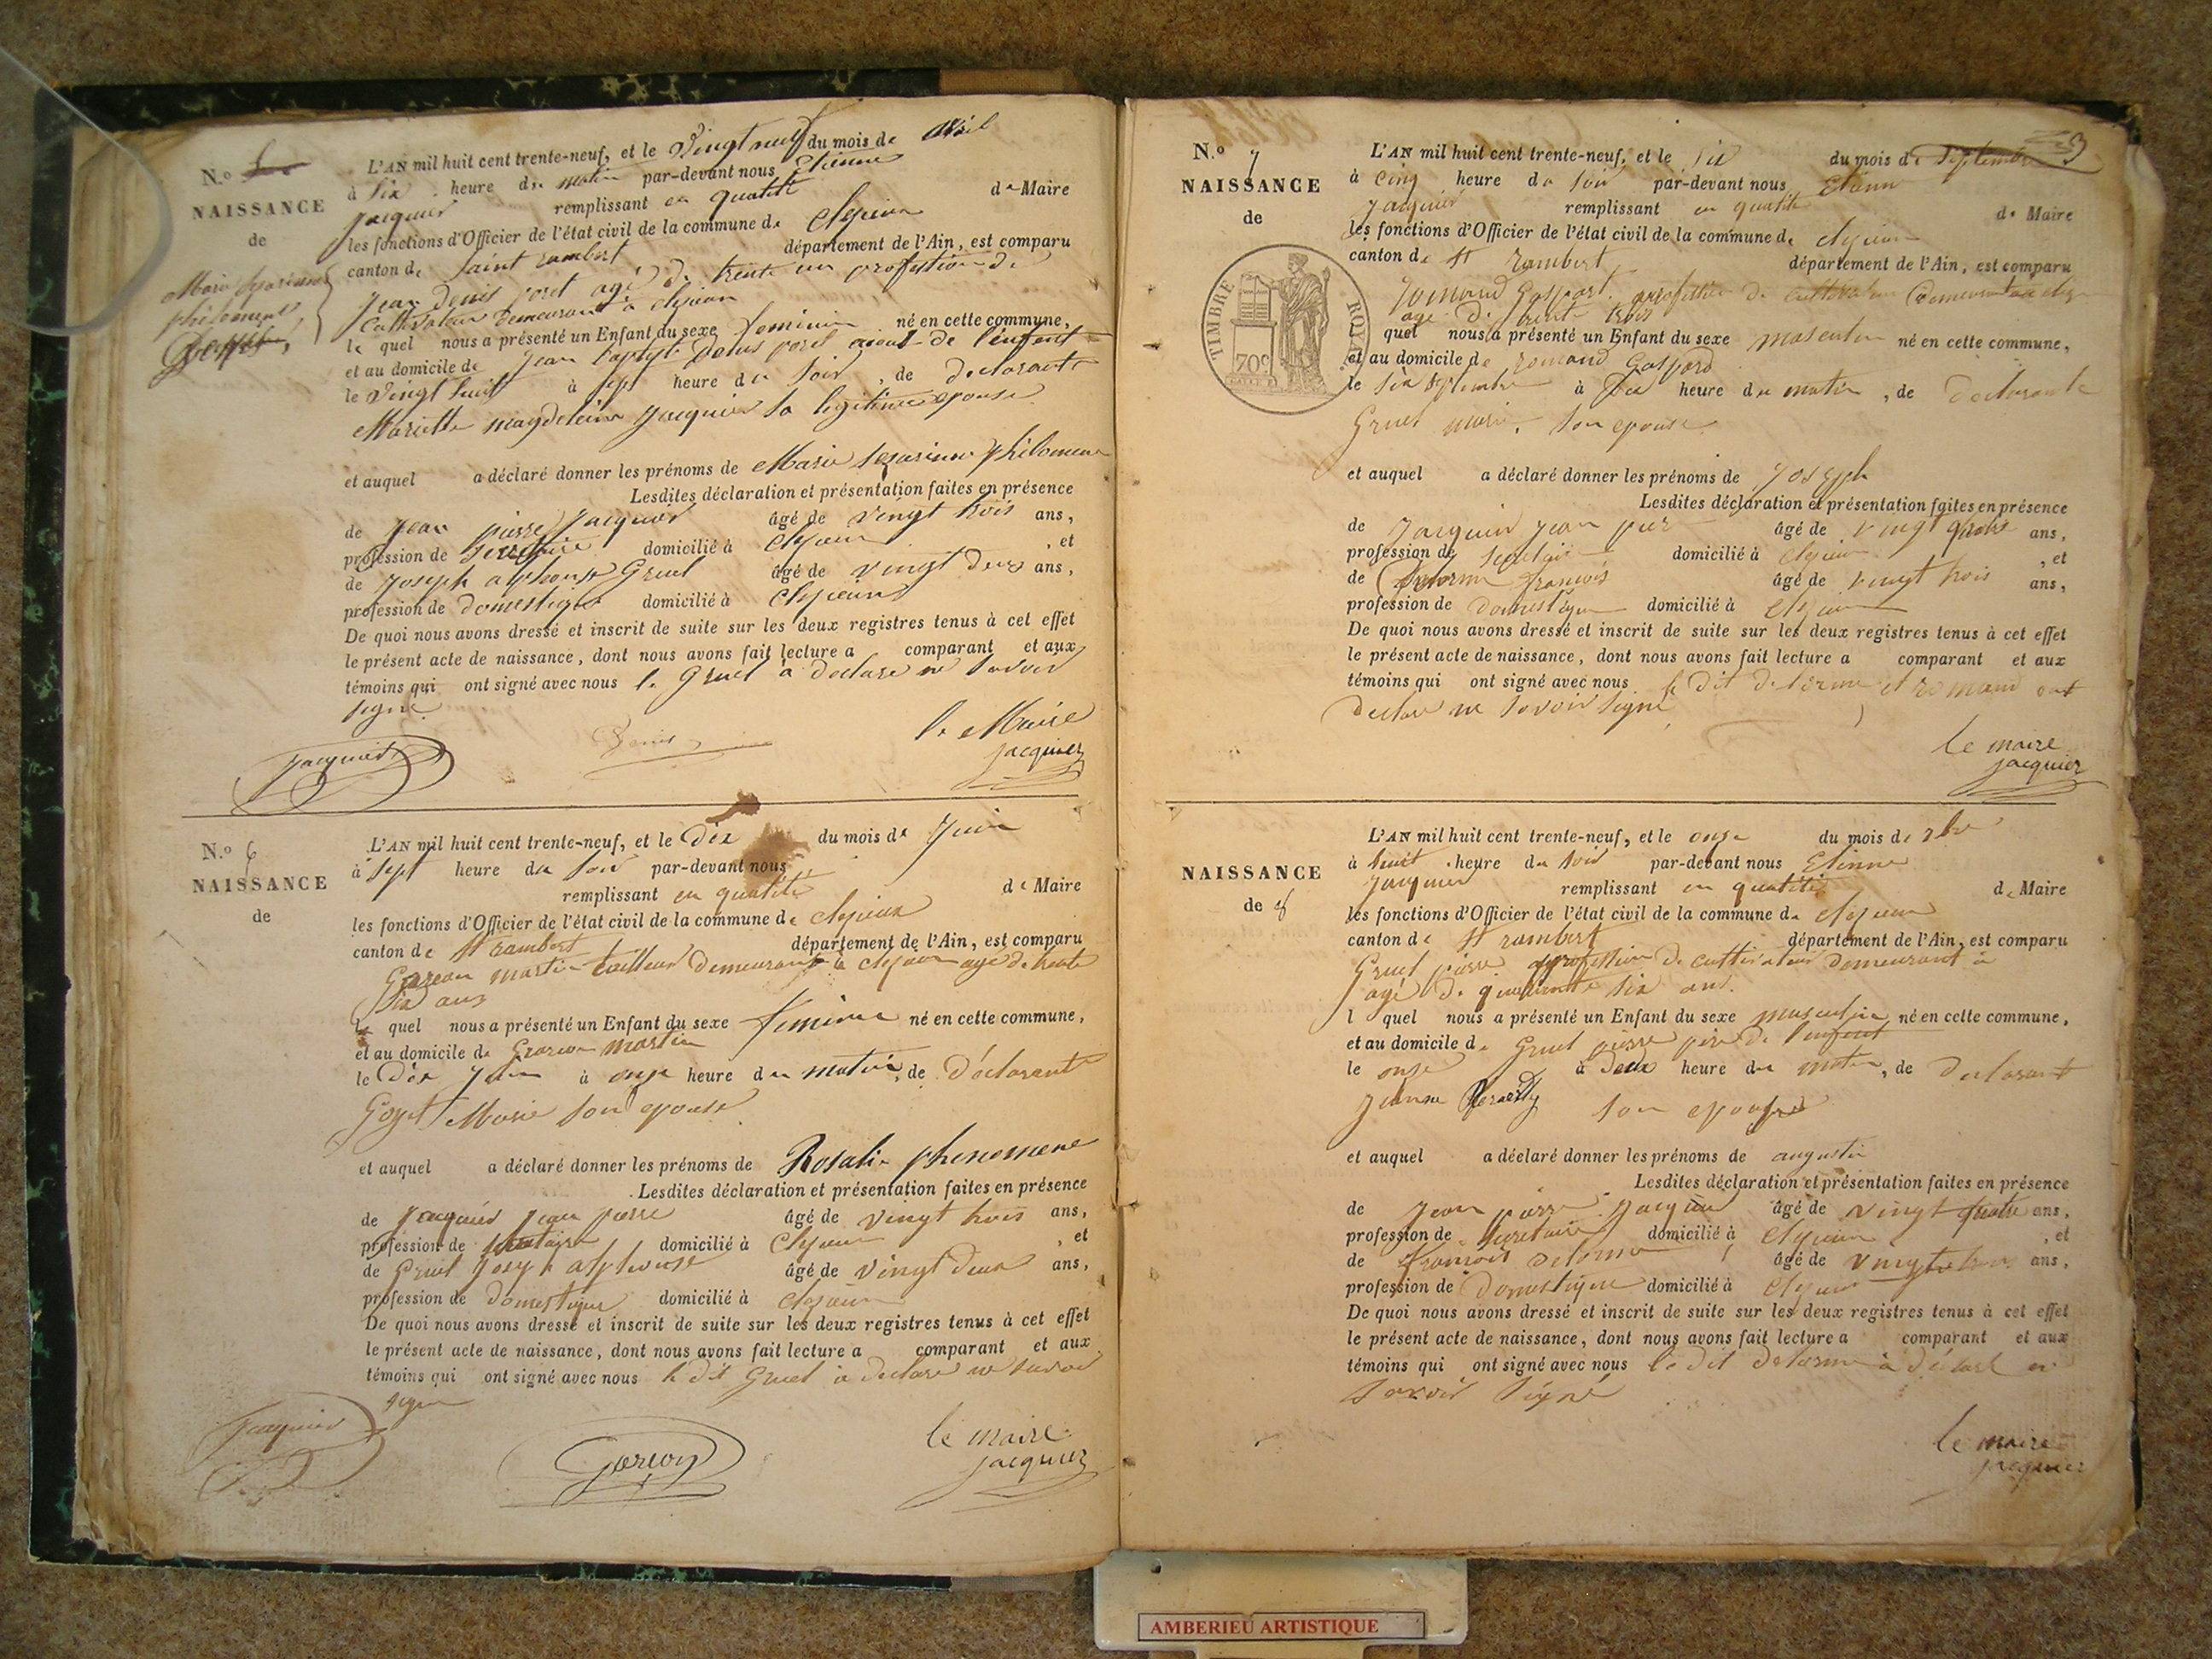 N.o 5
NAISSANCE
de
Marie
philomene
L'AN mil huit cent trente-neuf, et le Vingt neuf du mois de avril
à Six heure du matin par-devant nous Etienne
jacquier remplissant en qualité de Maire
les fonctions d'Officier de l'état civil de la commune de
canton de Saint rambert département de l'Ain, est comparu
Jean Denis agé de trente un profession de
Cultivateur demeurant à
le quel nous a présenté un Enfant du sexe feminin né en cette commune,
et au domicile de Jean baptiste Denis de l'enfant
le Vingt huit à sept heure du Soir, de declarant
Mariette magdeleine jacquier sa legitime epouse
et auquel a déclaré donner les prénoms de Marie philomene
Lesdites déclaration et présentation faites en présence
de Jean pierre Jacquier âgé de vingt trois ans,
profession de domicilié à , et
de Joseph alphonse Gruel âgé de vingt deux ans,
profession de domestique domicilié à
De quoi nous avons dressé et inscrit de suite sur les deux registres tenus à cet effet
le présent acte de naissance, dont nous avons fait lecture a comparant et aux
témoins qui ont signé avec nous le Gruel à declare ne savoir
signé
jacquier Denis le Maire
jacquier
N.o 6
NAISSANCE
de
L'AN mil huit cent trente-neuf, et le dix du mois de Juin
à Sept heure du Soir par-devant nous
remplissant en qualité de Maire
les fonctions d'Officier de l'état civil de la commune de
canton de St rambert département de l'Ain, est comparu
martin tailleur demeurant à agé de trente
Six ans
le quel nous a présenté un Enfant du sexe feminin né en cette commune,
et au domicile de martin
le Dix Juin à onze heure du matin, de déclarant
Goyet Marie son epouse
et auquel a déclaré donner les prénoms de Rosalie phenomene
Lesdites déclaration et présentation faites en présence
de Jacquier Jean pierre âgé de vingt trois ans,
profession de domicilié à , et
de Gruel Joseph alphonse âgé de vingt deux ans,
profession de domestique domicilié à
De quoi nous avons dressé et inscrit de suite sur les deux registres tenus à cet effet
le présent acte de naissance, dont nous avons fait lecture a comparant et aux
témoins qui ont signé avec nous le dit Gruel à declare ne savoir
signer
jacquier le maire
jacquier
N.o 7
NAISSANCE
de
TIMBRE ROYAL
70c
L'AN mil huit cent trente-neuf, et le Six du mois de Septembre
à Cinq heure du Soir par-devant nous Etienne
Jacquier remplissant en qualité de Maire
les fonctions d'Officier de l'état civil de la commune de
canton de St rambert département de l'Ain, est comparu
romand Gaspart profession de cultivateur demeurant
agé de trente trois
quel nous a présenté un Enfant du sexe masculin né en cette commune,
et au domicile de romand Gaspard
le Six Septembre à Dix heure du matin, de declarant
Gruel marie son epouse
et auquel a déclaré donner les prénoms de Joseph
Lesdites déclaration et présentation faites en présence
de Jacquier Jean âgé de vingt quatre ans,
profession de domicilié à , et
de Delorme francois âgé de vingt trois ans,
profession de domestique domicilié à
De quoi nous avons dressé et inscrit de suite sur les deux registres tenus à cet effet
le présent acte de naissance, dont nous avons fait lecture a comparant et aux
témoins qui ont signé avec nous le dit delorme et romand ont
declare ne savoir signé
le maire
jacquier
NAISSANCE
de 8
L'AN mil huit cent trente-neuf, et le onze du mois de
à huit heure du soir par-devant nous Etienne
Jacquier remplissant en qualité de Maire
les fonctions d'Officier de l'état civil de la commune de
canton de St rambert département de l'Ain, est comparu
Gruel pierre profession de cultivateur demeurant à
agé de quarante six ans
l quel nous a présenté un Enfant du sexe masculin né en cette commune,
et au domicile de Gruel pierre pere de l'enfant
le onze à Deux heure du matin, de declarant
Jeanne son epouse
et auquel a déclaré donner les prénoms de augustin
Lesdites déclaration et présentation faites en présence
de Jean pierre Jacquier âgé de vingt quatre ans,
profession de Secretaire domicilié à , et
de francois delorme âgé de vingt trois ans,
profession de Domestique domicilié à
De quoi nous avons dressé et inscrit de suite sur les deux registres tenus à cet effet
le présent acte de naissance, dont nous avons fait lecture a comparant et aux
témoins qui ont signé avec nous le dit delorme à déclaré ne
savoir signé
le maire
jacquier
AMBERIEU ARTISTIQUE